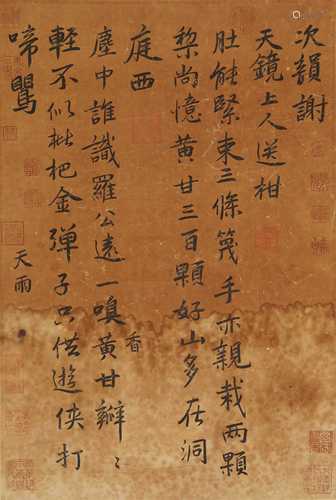 次韻謝
天鏡上人送柑
肚能緊束三條篾手亦親栽兩顆
棃尚憶黃甘三百顆好山多在洞
庭西
塵中誰識羅公遠一嗅黃甘瓣〻香
輕不似枇杷金彈子只供遊俠打
啼鸎
天雨